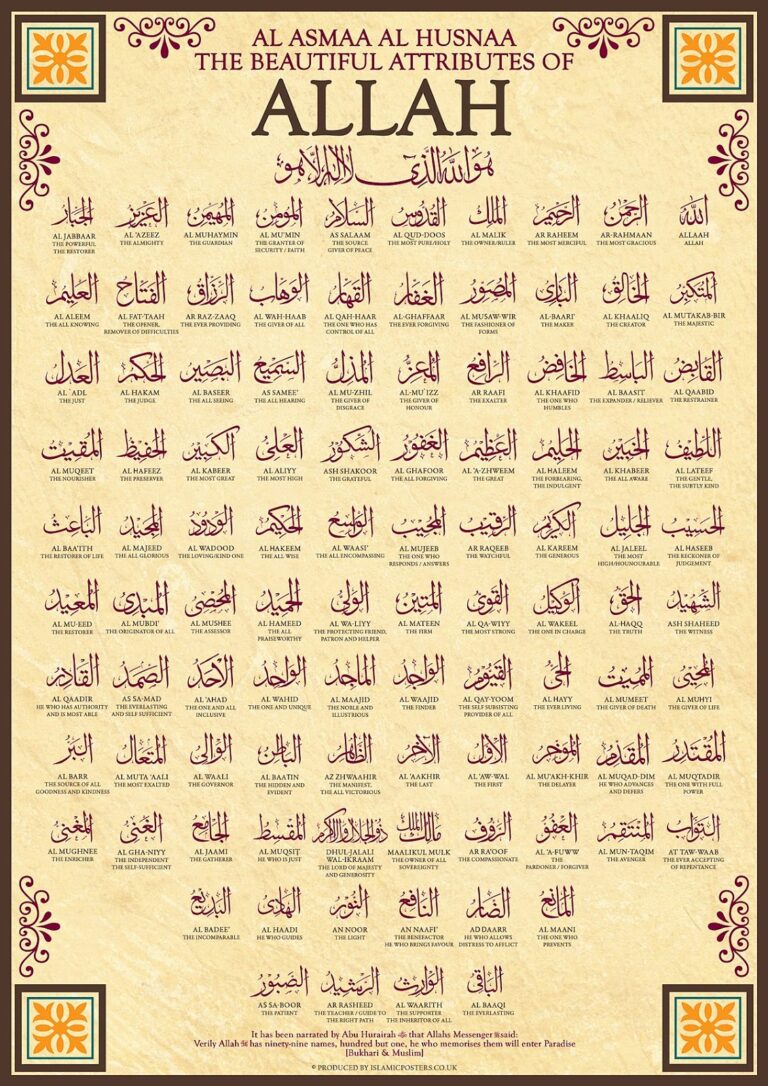 AL ASMAA AL HUSNAA
THE BEAUTIFUL ATTRIBUTES OF
ALLAH
هو الله الذى لا اله الا هو
الله
ALLAAH
ALLAH
الرحمن
AR-RAHMAAN
THE MOST GRACIOUS
الرحيم
AR RAHEEM
THE MOST MERCIFUL
الملك
AL MALIK
THE OWNER/RULER
القدوس
AL QUD-DOOS
THE MOST PURE/HOLY
السلام
AS SALAAM
THE SOURCE
GIVER OF PEACE
المؤمن
AL MU'MIN
THE GRANTER OF
SECURITY / FAITH
المهيمن
AL MUHAYMIN
THE GUARDIAN
العزيز
AL 'AZEEZ
THE ALMIGHTY
الجبار
AL JABBAAR
THE POWERFUL
THE RESTORER
المتكبر
AL MUTAKAB-BIR
THE MAJESTIC
الخالق
AL KHAALIQ
THE CREATOR
البارى
AL-BAARI'
THE MAKER
المصور
AL MUSAW-WIR
THE FASHIONER OF
FORMS
الغفار
AL-GHAFFAAR
THE EVER FORGIVING
القهار
AL QAH-HAAR
THE ONE WHO HAS
CONTROL OF ALL
الوهاب
AL WAH-HAAB
THE GIVER OF ALL
الرزاق
AR RAZ-ZAAQ
THE EVER PROVIDING
الفتاح
AL FAT-TAAH
THE OPENER,
REMOVER OF DIFFICULTIES
العليم
AL ALEEM
THE ALL KNOWING
القابض
AL QAABID
THE RESTRAINER
الباسط
AL BAASIT
THE EXPANDER / RELIEVER
الخافض
AL KHAAFID
THE ONE WHO
HUMBLES
الرافع
AR RAAFI
THE EXALTER
المعز
AL-MU`IZZ
THE GIVER OF
HONOUR
المذل
AL MU-ZHIL
THE GIVER OF
DISGRACE
السميع
AS SAMEE'
THE ALL HEARING
البصير
AL BASEER
THE ALL SEEING
الحكم
AL HAKAM
THE JUDGE
العدل
AL `ADL
THE JUST
اللطيف
AL LATEEF
THE GENTLE,
THE SUBTLY KIND
الخبير
AL KHABEER
THE ALL AWARE
الحليم
AL HALEEM
THE FORBEARING,
THE INDULGENT
العظيم
AL 'A-ZHWEEM
THE GREAT
الغفور
AL GHAFOOR
THE ALL FORGIVING
الشكور
ASH SHAKOOR
THE GRATEFUL
العلى
AL ALIYY
THE MOST HIGH
الكبير
AL KABEER
THE MOST GREAT
الحفيظ
AL HAFEEZ
THE PRESERVER
المقيت
AL MUQEET
THE NOURISHER
الحسيب
AL HASEEB
THE RECKONER OF
JUDGEMENT
الجليل
AL JALEEL
THE MOST
HIGH/HOUNOURABLE
الكريم
AL KAREEM
THE GENEROUS
الرقيب
AR RAQEEB
THE WATCHFUL
المجيب
AL MUJEEB
THE ONE WHO
RESPONDS / ANSWERS
الواسع
AL WAASI'
THE ALL ENCOMPASSING
الحكيم
AL HAKEEM
THE ALL WISE
الودود
AL WADOOD
THE LOVING/KIND ONE
المجيد
AL MAJEED
THE ALL GLORIOUS
الباعث
AL BAA'ITH
THE RESTORER OF LIFE
الشهيد
ASH SHAHEED
THE WITNESS
الحق
AL-HAQQ
THE TRUTH
الوكيل
AL WAKEEL
THE ONE IN CHARGE
القوى
AL QA-WIYY
THE MOST STRONG
المتين
AL MATEEN
THE FIRM
الولى
AL WA-LIYY
THE PROTECTING FRIEND,
PATRON AND HELPER
الحميد
AL HAMEED
THE ALL
PRAISEWORTHY
المحصى
AL MUSHEE
THE ASSESSOR
المبدى
AL MUBDI'
THE ORIGINATOR OF ALL
المعيد
AL MU-EED
THE RESTORER
المحيى
AL MUHYI
THE GIVER OF LIFE
المميت
AL MUMEET
THE GIVER OF DEATH
الحى
AL HAYY
THE EVER LIVING
القيوم
AL QAY-YOOM
THE SELF SUBSISTING
PROVIDER OF ALL
الواجد
AL WAAJID
THE FINDER
الماجد
AL MAAJID
THE NOBLE AND
ILLUSTRIOUS
الواحد
AL WAHID
THE ONE AND UNIQUE
الأحد
AL 'AHAD
THE ONE AND ALL
INCLUSIVE
الصمد
AS SA-MAD
THE EVERLASTING
AND SELF SUFFICIENT
القادر
AL QAADIR
HE WHO HAS AUTHORITY
AND IS MOST ABLE
المقتدر
AL MUQTADIR
THE ONE WITH FULL
POWER
المقدم
AL MUQAD-DIM
HE WHO ADVANCES
AND DEFERS
المؤخر
AL MU'AKH-KHIR
THE DELAYER
الأول
AL 'AW-WAL
THE FIRST
الآخر
AL 'AAKHIR
THE LAST
الظاهر
AZ ZHWAAHIR
THE MANIFEST,
THE ALL VICTORIOUS
الباطن
AL BAATIN
THE HIDDEN AND
EVIDENT
الوالى
AL WAALI
THE GOVERNOR
المتعال
AL MUTA 'AALI
THE MOST EXALTED
البر
AL BARR
THE SOURCE OF ALL
GOODNESS AND KINDNESS
التواب
AT TAW-WAAB
THE EVER ACCEPTING
OF REPENTANCE
المنتقم
AL MUN-TAQIM
THE AVENGER
العفو
AL 'A-FUWW
THE
PARDONER / FORGIVER
الرؤف
AR RA'OOF
THE COMPASSIONATE
مالك الملك
MAALIKUL MULK
THE OWNER OF ALL
SOVEREIGNTY
ذوالجلال والاكرام
DHUL-JALALI
WAL-IKRAAM
THE LORD OF MAJESTY
AND GENEROSITY
المقسط
AL MUQSIT
HE WHO IS JUST
الجامع
AL JAAMI
THE GATHERER
الغنى
AL GHA-NIYY
THE INDEPENDENT
THE SELF-SUFFICIENT
المغنى
AL MUGHNEE
THE ENRICHER
المانع
AL MAANI
THE ONE WHO
PREVENTS
الضار
AD DAARR
HE WHO ALLOWS
DISTRESS TO AFFLICT
النافع
AN NAAFI'
THE BENEFACTOR
HE WHO BRINGS FAVOUR
النور
AN NOOR
THE LIGHT
الهادى
AL HAADI
HE WHO GUIDES
البديع
AL BADEE'
THE INCOMPARABLE
الباقى
AL BAAQI
THE EVERLASTING
الوارث
AL WAARITH
THE SUPPORTER
THE INHERITOR OF ALL
الرشيد
AR RASHEED
THE TEACHER / GUIDE TO
THE RIGHT PATH
الصبور
AS SA-BOOR
THE PATIENT
It has been narrated by Abu Hurairah that Allahs Messenger ﷺ said:
Verily Allah has ninety-nine names, hundred but one, he who memorises them will enter Paradise
[Bukhari & Muslim]
© PRODUCED BY ISLAMICPOSTERS.CO.UK